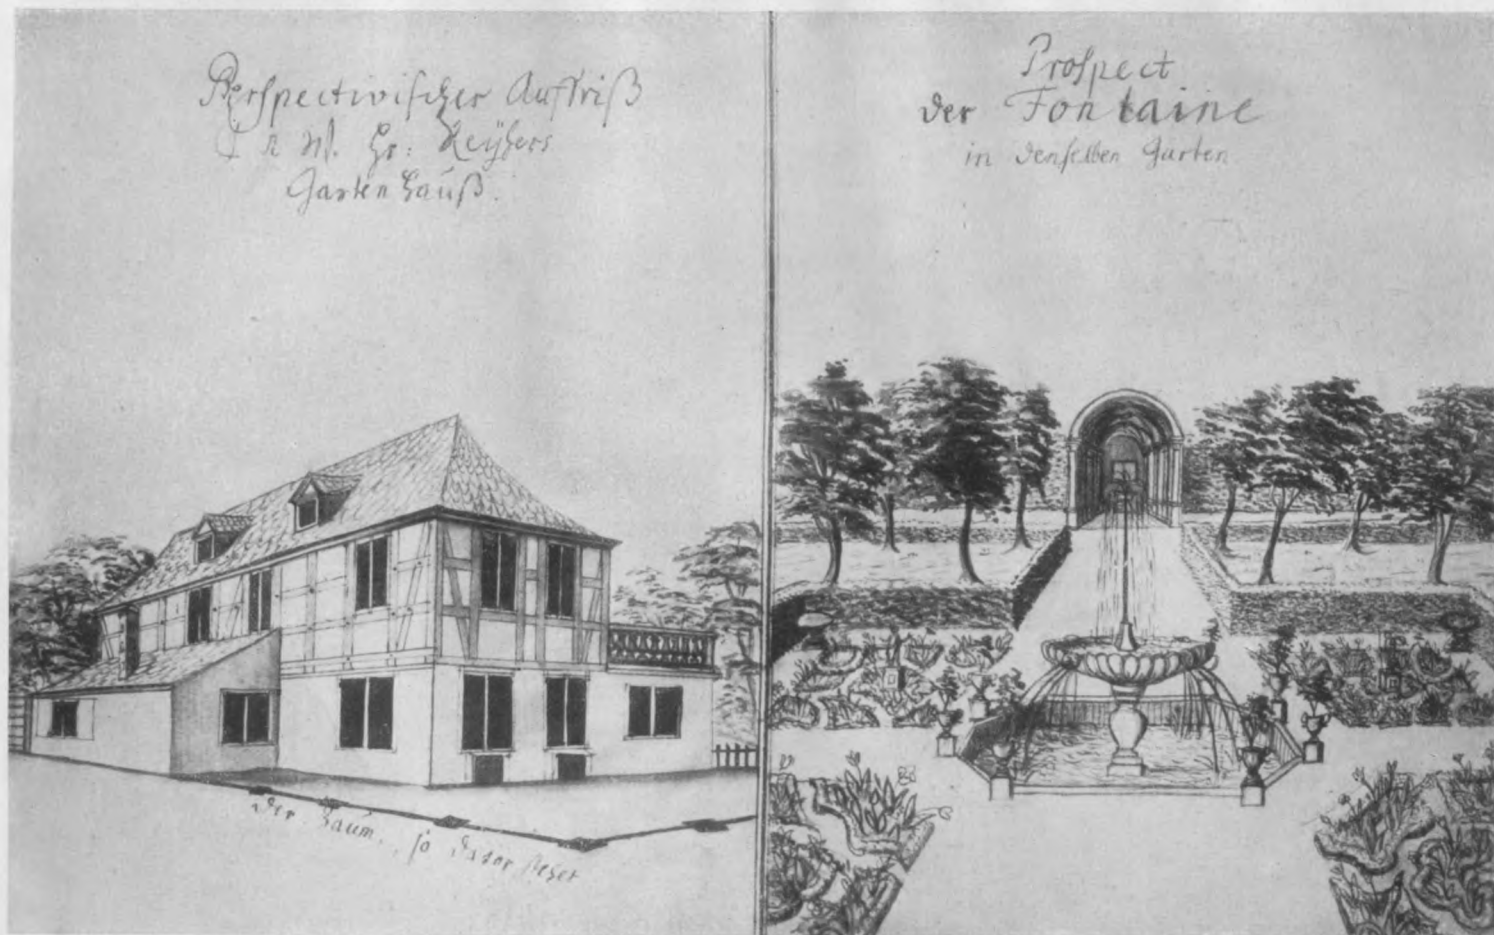 Perspectivischer Auffriß
W. Hr: Keÿsers
Garten Hauß.
Der Zaum, so davor stehet
Prospect
der Fontaine
in denselben Garten